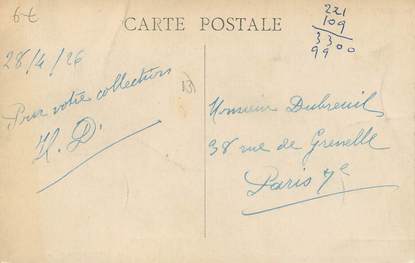 6€
CARTE POSTALE
221
109
3300
9900
28/4/26
Pour votre collection
H. D.
Monsieur Dubreuil
38 rue de Grenelle
Paris 7e